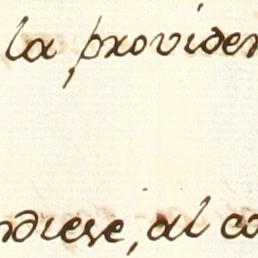 la providen
ndiese, al co